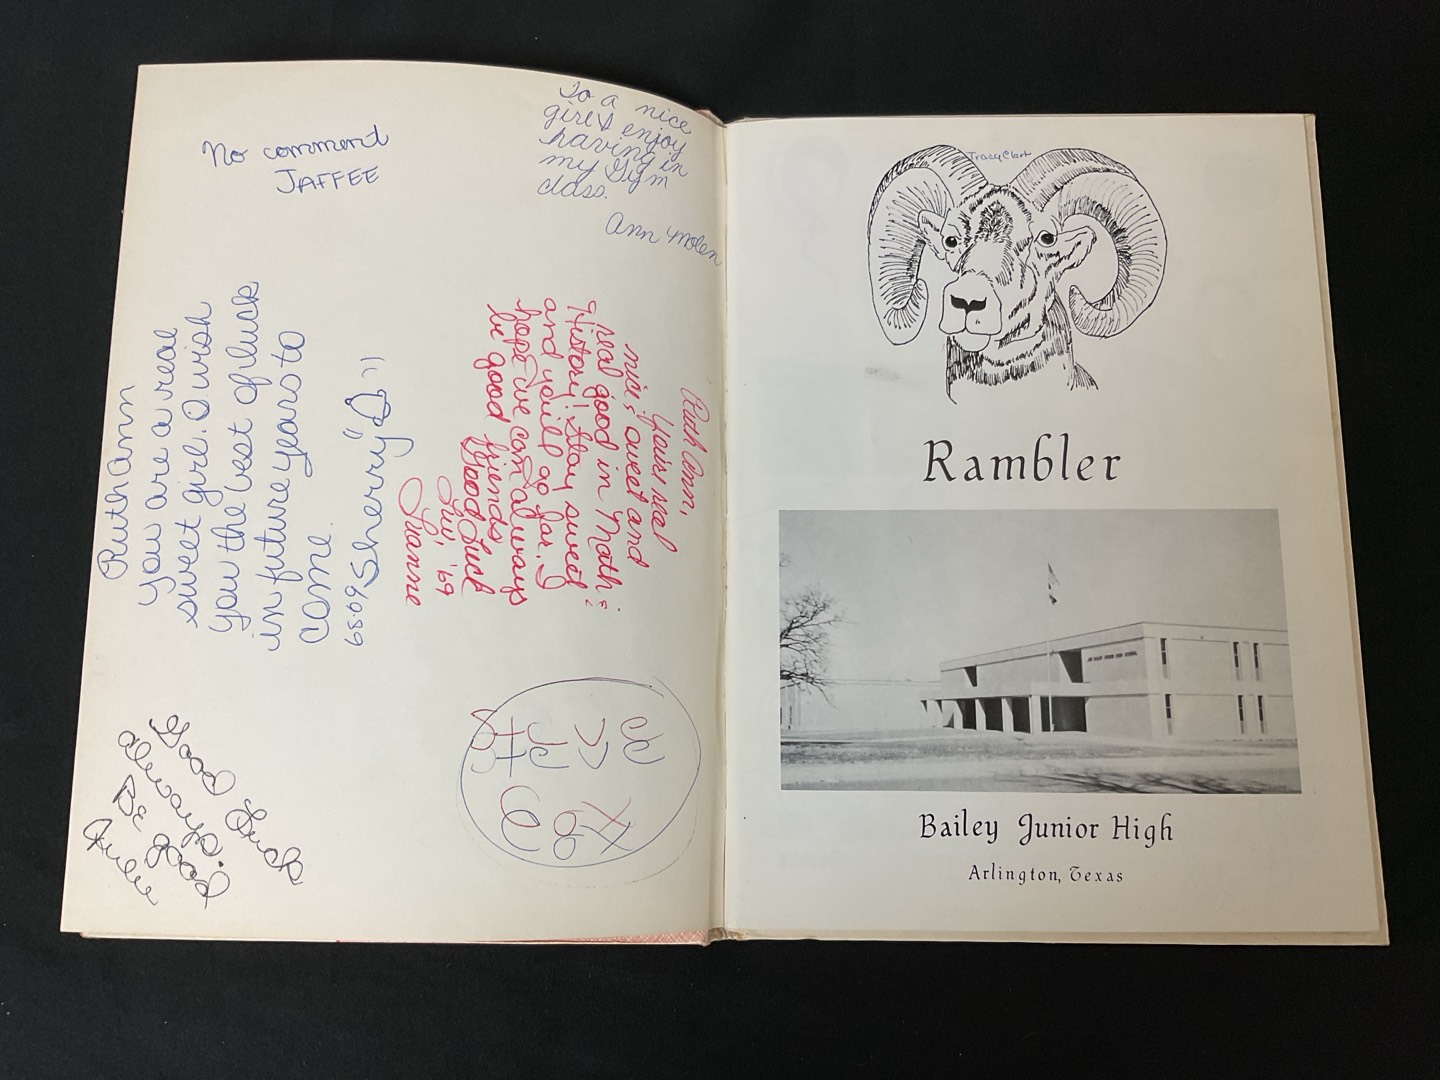 No comment
JAFFEE
To a nice
girl I enjoy
having in
my Gym
class.
Ann Molen
Ruth Ann
You are a real
sweet girl. I wish
you the best of luck
in future years to
come.
68-69 Sherry
Ruth Ann,
You're real
nice, sweet and
real good in Math &
History! Stay sweet
and you'll go far. I
hope we can always
be good friends
Good Luck
'69
Luanne
Good Luck
always.
Be good
Tracy Clark
Rambler
Bailey Junior High
Arlington, Texas